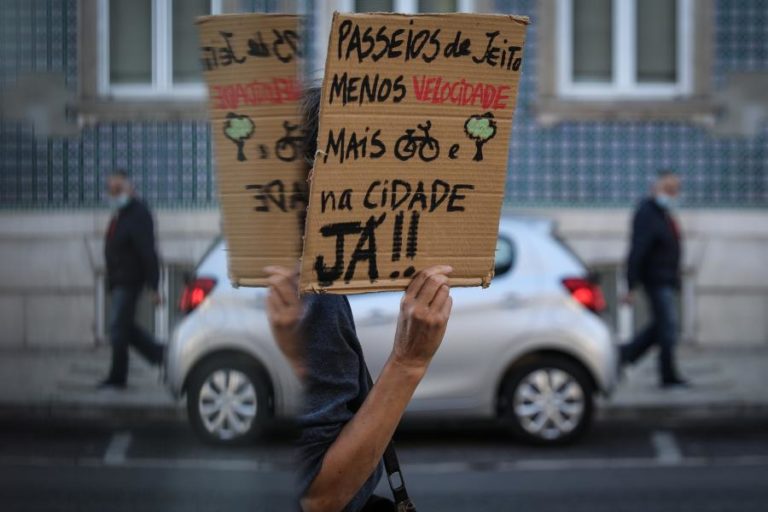 PASSEIOS de JEITO
MENOS VELOCIDADE
MAIS e
na CIDADE
JÁ!!